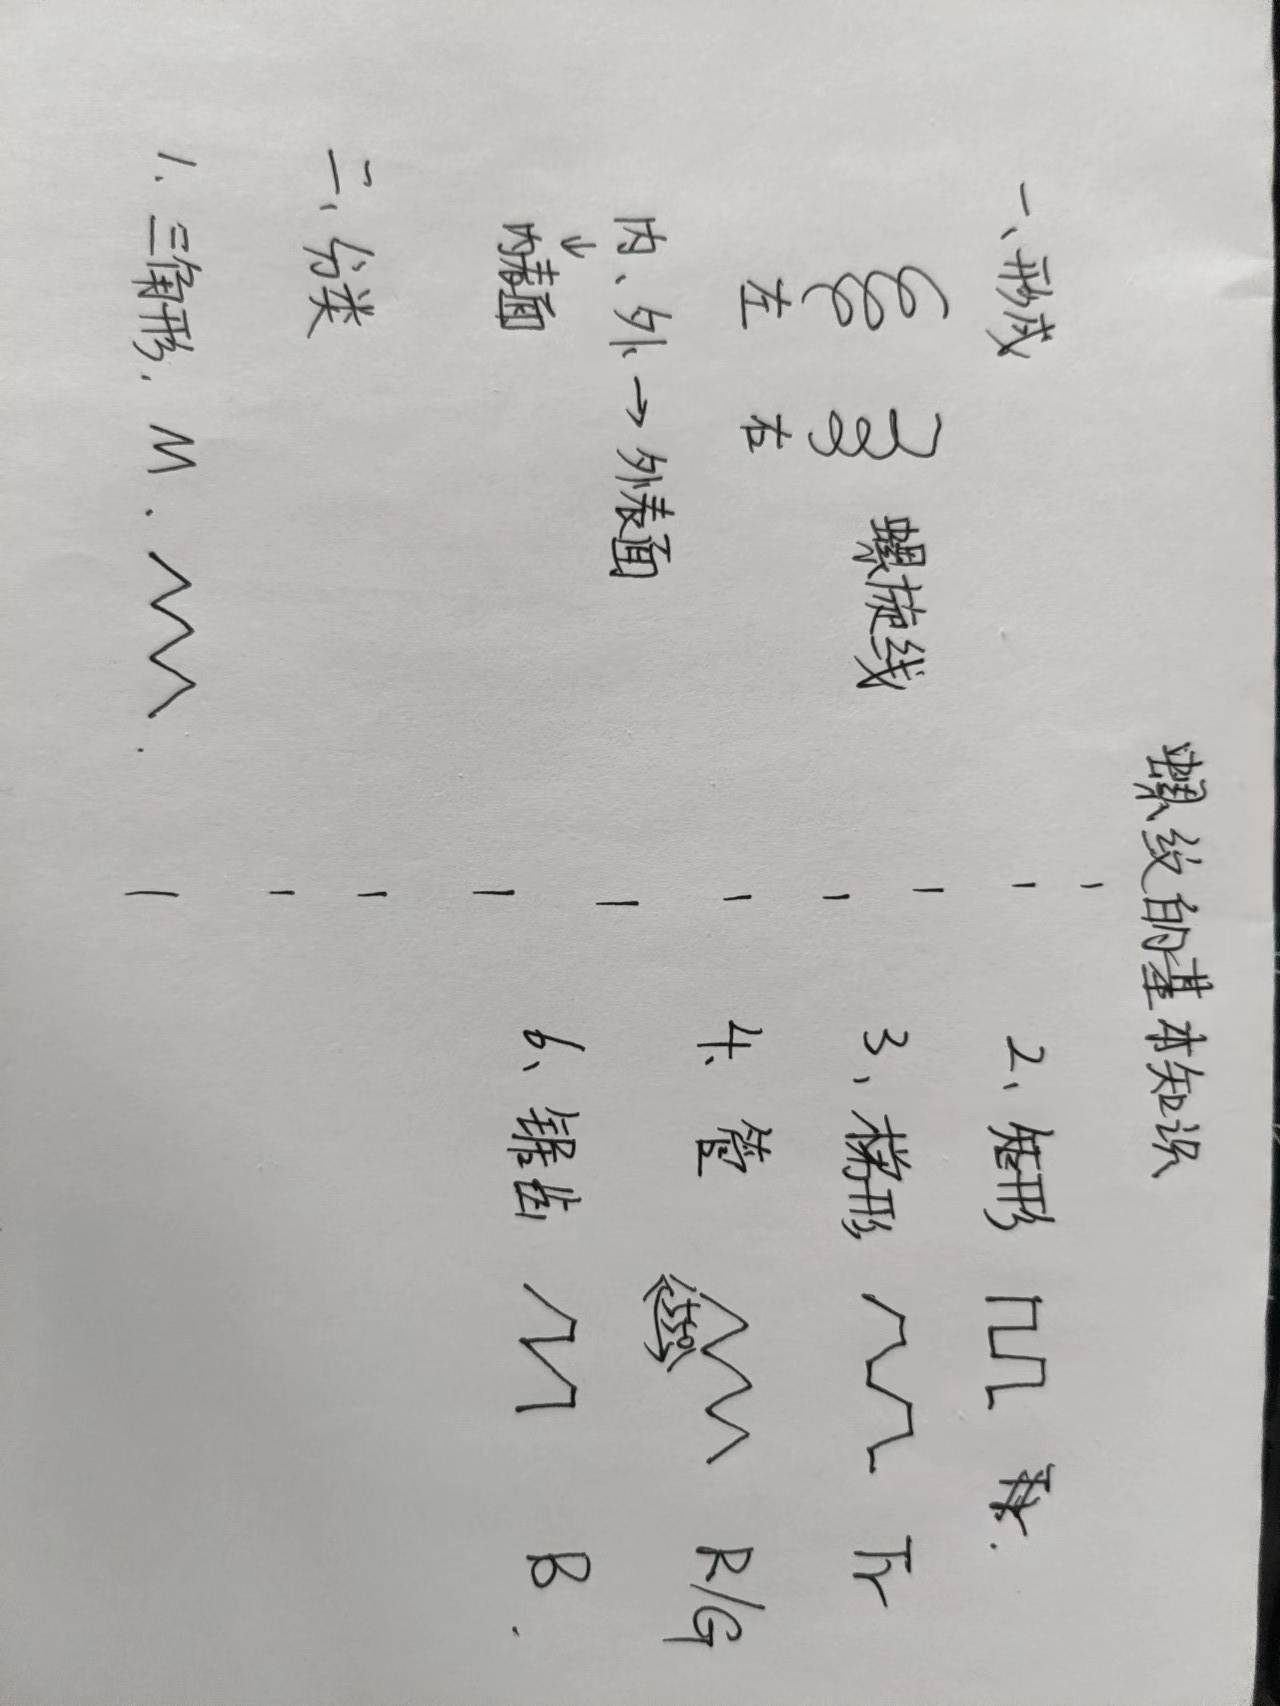 螺纹的基本知识
一、形成
螺旋线
左 右
内、外→外表面
↓
内表面
二、分类
1. 三角形. M.
2、矩形
3、梯形 Tr
4、管 R/G
(55°)
6、锯齿 B.